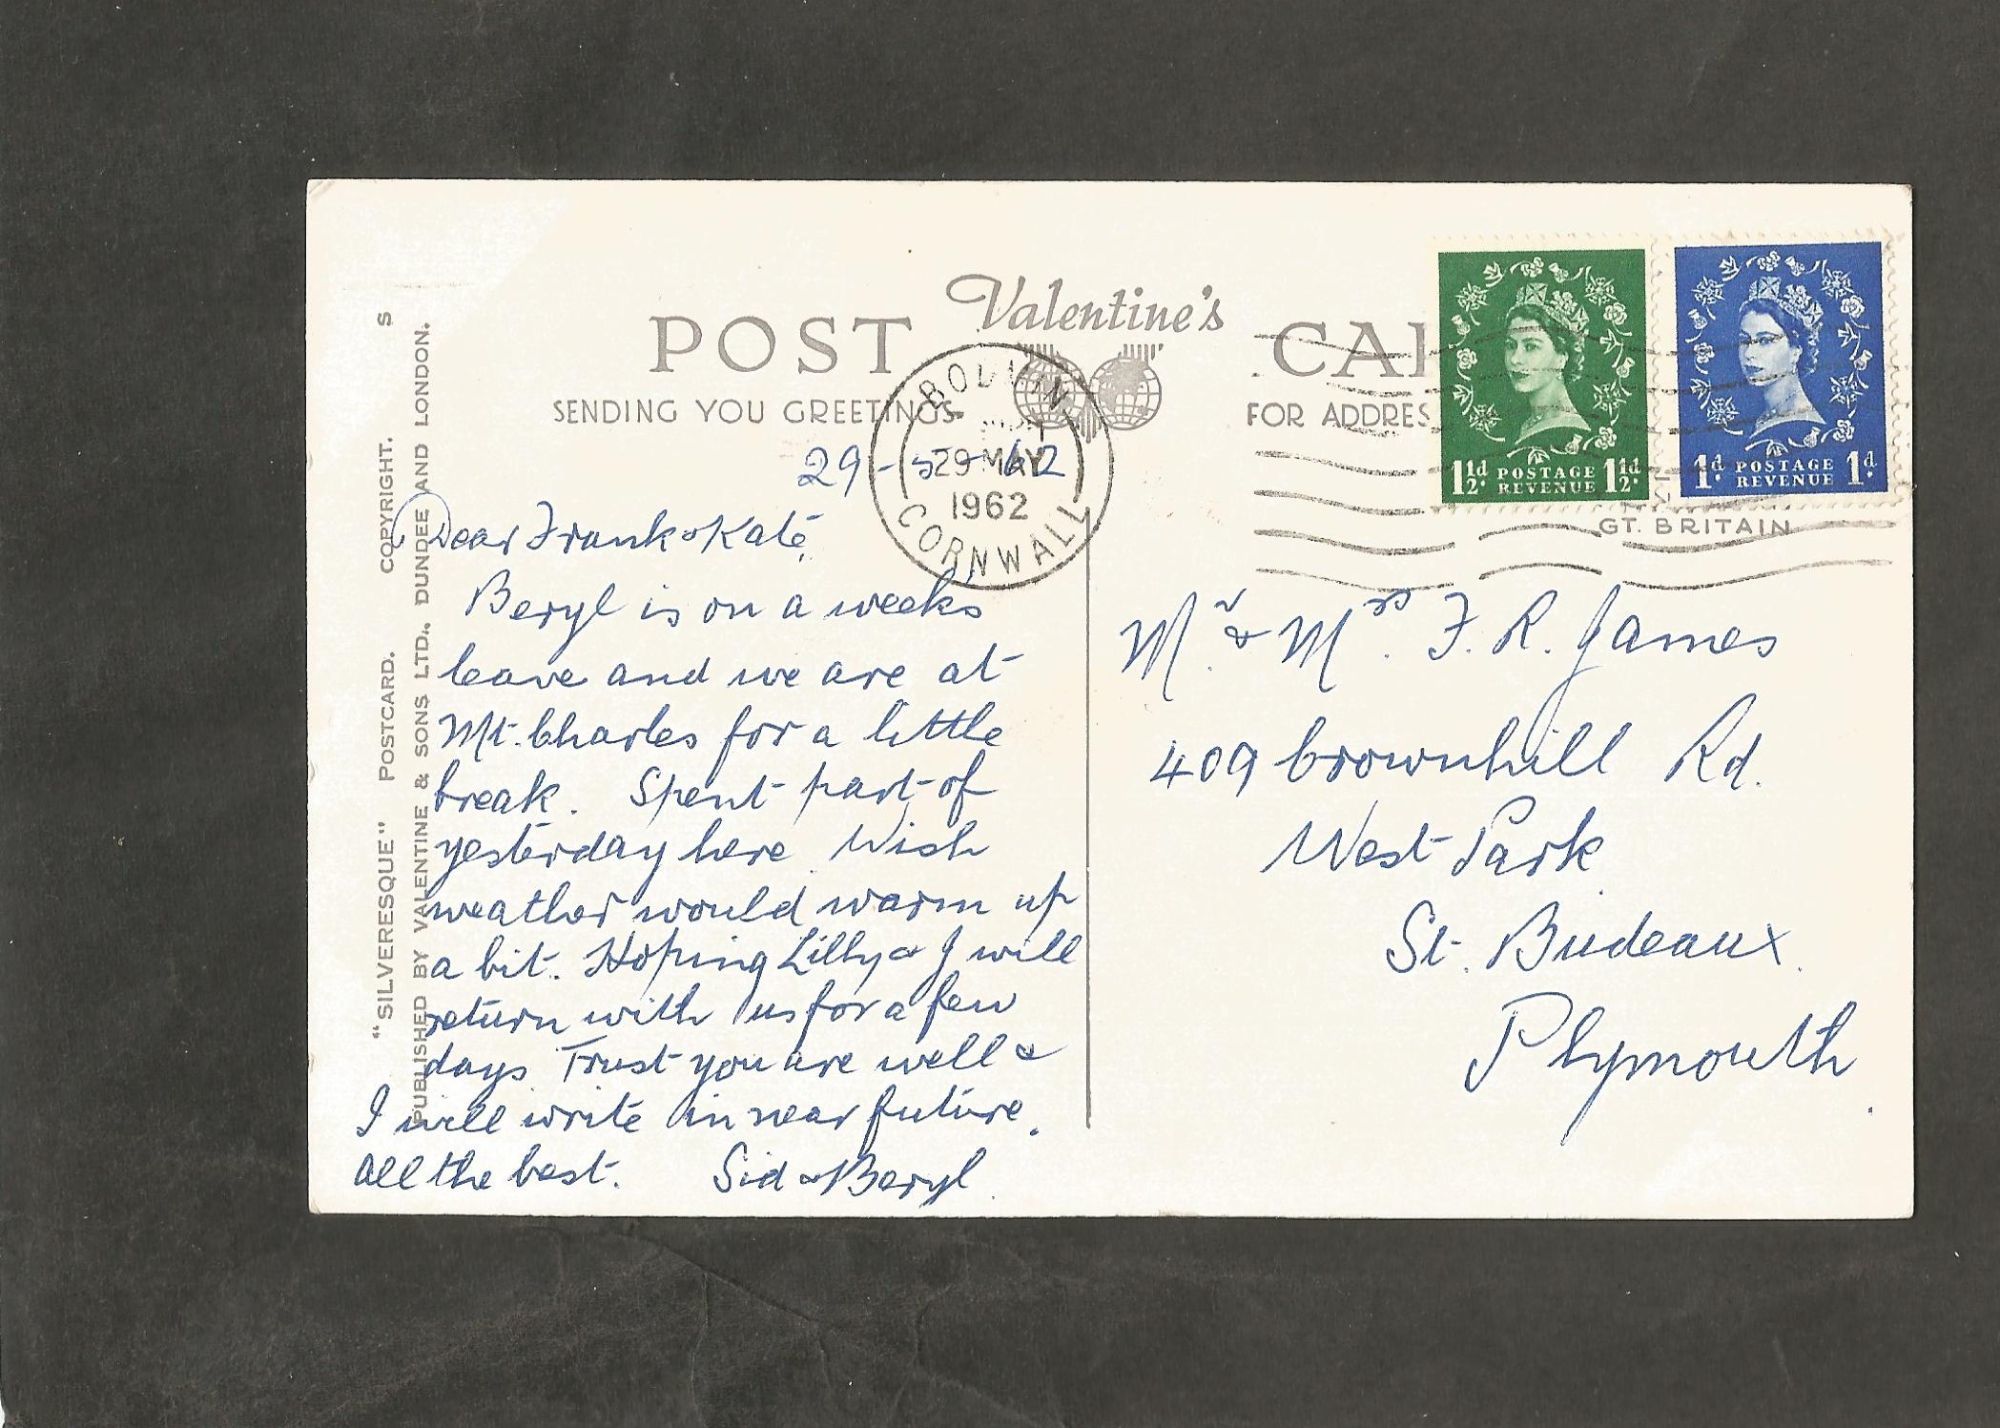 Valentine's
POST CA
SENDING YOU GREETINGS
FOR ADDRES
BODMIN
29 MAY
1962
CORNWALL
1½d POSTAGE REVENUE 1½d
1d POSTAGE REVENUE 1d
GT. BRITAIN
"SILVERESQUE" POSTCARD. COPYRIGHT. S
PUBLISHED BY VALENTINE & SONS LTD., DUNDEE AND LONDON.
29-5-62
Dear Frank & Kate,
Beryl is on a weeks
leave and we are at
Mt. Charles for a little
break. Spent part of
yesterday here. Wish
weather would warm up
a bit. Hoping Lilly & J will
return with us for a few
days. Trust you are well &
I will write in near future.
All the best. Sid & Beryl.
Mr. & Mrs. F. R. James
409 Crownhill Rd.
West Park
St. Budeaux.
Plymouth.